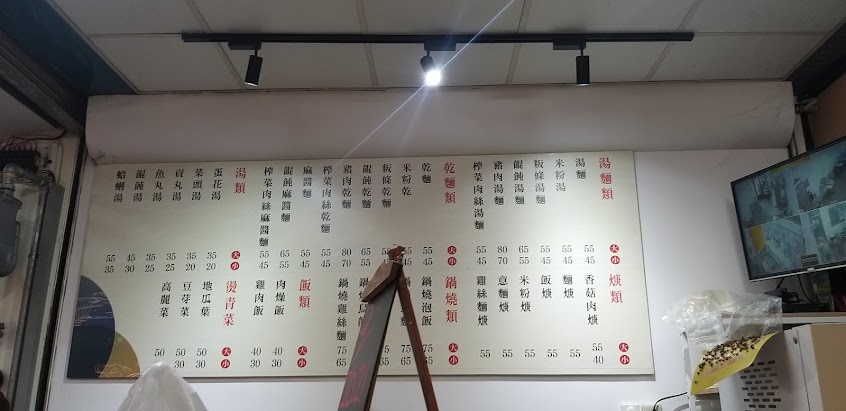 湯麵類 大 小
湯麵 55 45
米粉湯 55 45
粄條湯麵 55 45
餛飩湯麵 65 55
豬肉湯麵 80 70
榨菜肉絲湯麵 55 45
乾麵類 大 小
乾麵 55 45
米粉乾 55
粄條乾麵 55
餛飩乾麵 65 55
豬肉乾麵 80 70
榨菜肉絲乾麵 55 45
麻醬麵 55 45
餛飩麻醬麵 65 55
榨菜肉絲麻醬麵 55 45
湯類 大 小
蛋花湯 35 20
菜頭湯 35 20
貢丸湯 35 25
魚丸湯 35 25
餛飩湯 45 30
蛤蜊湯 55 35
焿類 大 小
香菇肉焿 55 40
麵焿 55
飯焿 55
米粉焿 55
意麵焿 55
雞絲麵焿 55
鍋燒類 大 小
鍋燒泡飯 75 65
麵 75 65
鍋燒烏 75 65
鍋燒雞絲麵 75 65
飯類 大 小
肉燥飯 40 30
雞肉飯 40 30
燙青菜 大 小
地瓜葉 50 30
豆芽菜 50 30
高麗菜 50